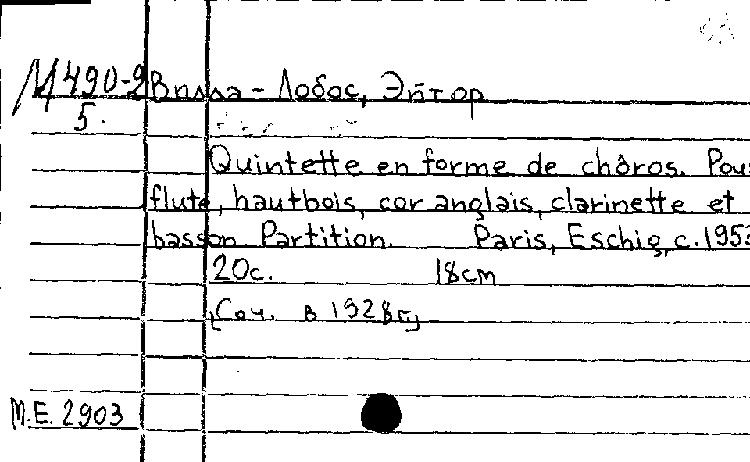 М490-9 Вилла-Лобос, Эйтор
5.
Quintette en forme de chôros. Pour
flute, hautbois, cor anglais, clarinette et
basson Partition. Paris, Eschig, c.1953
20с. 18cm
[Соч. в 1928г]
M.E. 2903